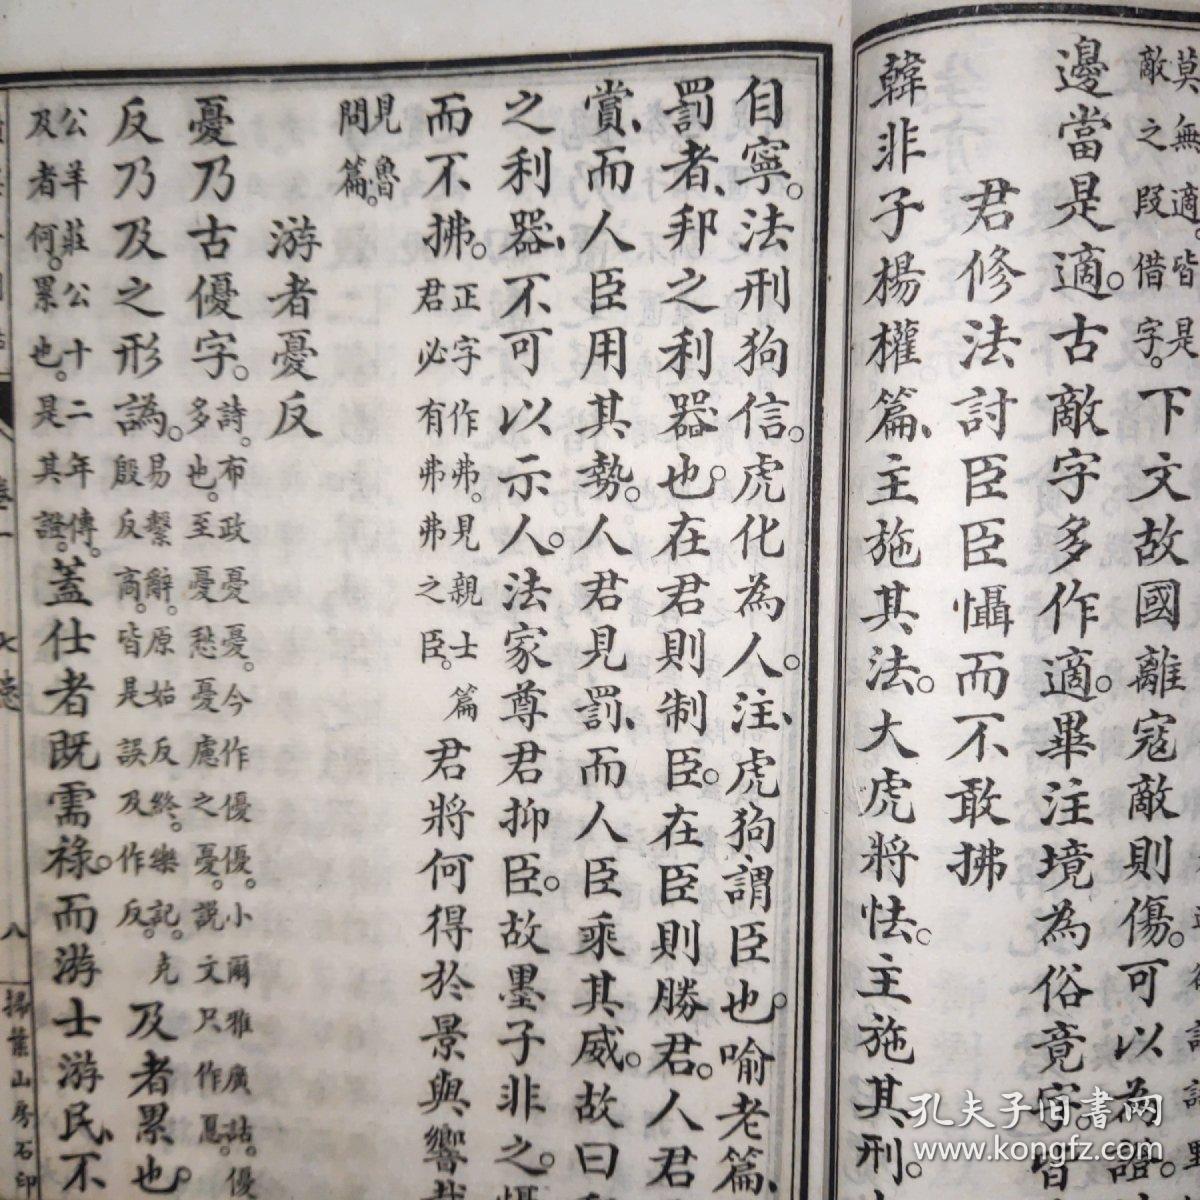 莫無適。皆是
敵之叚借字。
下文故國離寇敵則傷。可以為證。
邊當是適。古敵字多作適。畢注境為俗竟字。皆
君修法討臣臣懾而不敢拂
韓非子楊權篇、主施其法。大虎將怯。主施其刑。
自寧。法刑狗信。虎化為人。注、虎狗謂臣也。喻老篇、
罰者、邦之利器也。在君則制臣。在臣則勝君。人君
賞、而人臣用其勢。人君見罰、而人臣乘其威。故曰
之利器、不可以示人。法家尊君抑臣。故墨子非之。懾
而不拂。
正字作弗。見親士篇
君必有弗弗之臣。
君將何得於景與響哉
見魯
問篇。
游者憂反
憂乃古優字。
詩。布政憂憂。今作優優。小爾雅廣詁。優
多也。至憂愁憂慮之憂。說文只作𢝊。
反乃及之形譌。
易繫辭。原始反終。樂記。克
殷反商。皆是誤及作反。
及者累也。
公羊莊公十二年傳。
及者何。累也。是其證。
蓋仕者既需祿。而游士游民、不
八
掃葉山房石印
孔夫子旧书网
www.kongfz.com